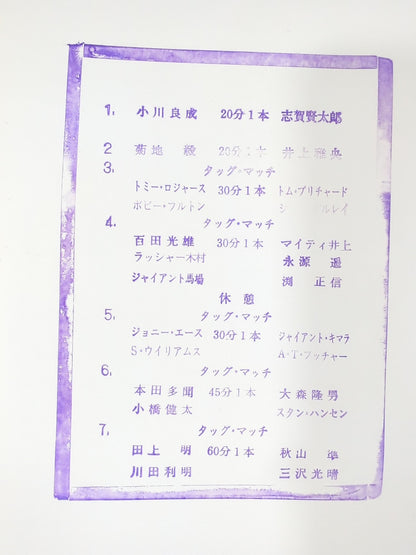 1. 小川良成 20分1本 志賀賢太郎
2 菊地 毅 20分1本 井上雅央
3. タッグ・マッチ
トミー・ロジャース 30分1本 トム・プリチャード
ボビー・フルトン
4. タッグ・マッチ
百田光雄 30分1本 マイティ井上
ラッシャー木村 永源 遥
ジャイアント馬場 渕 正信
休憩
5. タッグ・マッチ
ジョニー・エース 30分1本 ジャイアント・キマラ
S・ウイリアムス A・T・ブッチャー
6. タッグ・マッチ
本田多聞 45分1本 大森隆男
小橋健太 スタン・ハンセン
7. タッグ・マッチ
田上 明 60分1本 秋山 準
川田利明 三沢光晴